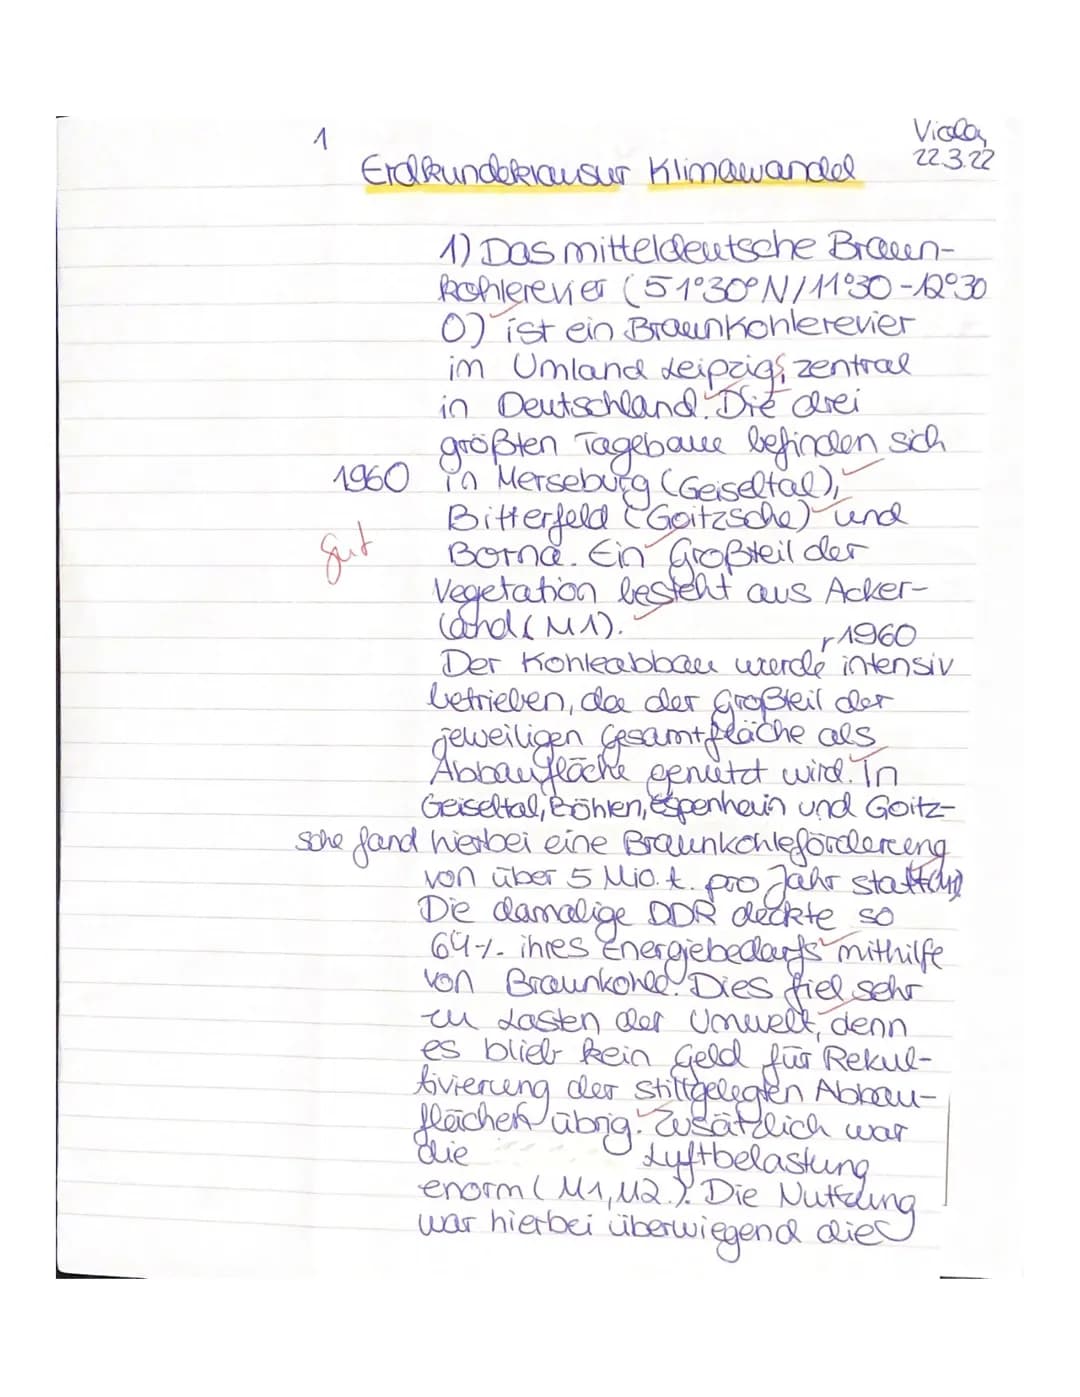 1
Viola,
22.3.22
Erdkundeklausur Klimawandel
1) Das mitteldeutsche Braun-
kohlerevier (51°30°N/11°30-12°30
O) ist ein Braunkohlerevier
im Umland Leipzigs, zentral
in Deutschland. Die drei
größten Tagebaue befinden sich
1960 in Merseburg (Geiseltal),
Bitterfeld (Goitzsche) und
gut
Borna. Ein Großteil der
Vegetation besteht aus Acker-
land (M1).
1960
Der Kohleabbau wurde intensiv
betrieben, da der Großteil der
jeweiligen Gesamtfläche als
Abbaufläche genutzt wird. In
Geiseltal, Böhlen, Espenhain und Goitz-
sche fand hierbei eine Braunkohleförderung
von über 5 Mio. t. pro Jahr statt
Die damalige DDR deckte so
64% ihres Energiebedarfs mithilfe
von Braunkohle. Dies fiel sehr
zu Lasten der Umwelt, denn
es blieb kein Geld für Rekul-
tivierung der stillgelegten Abbau-
flächen übrig. Zusätzlich war
die Luftbelastung
enorm (M1, M2.). Die Nutzung
war hierbei überwiegend die